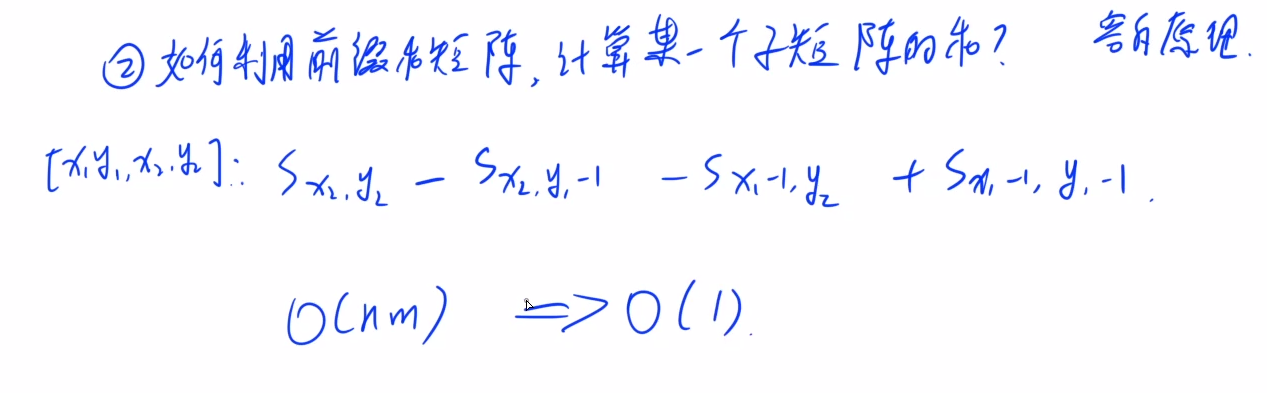 ② 如何利用前缀和矩阵，计算某一个子矩阵的和？ 容斥原理.
[x₁y₁,x₂.y₂]: S x₂,y₂ - S x₂,y₁-1 - S x₁-1,y₂ + S x₁-1,y₁-1.
O(nm) => O(1).